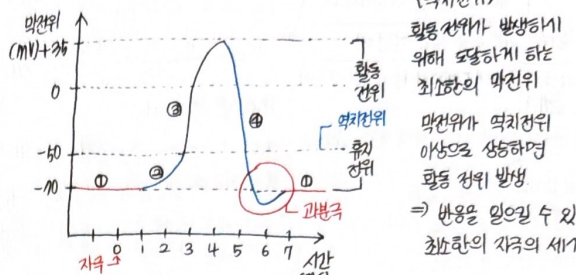 막전위
(mV)+35
0
-50
-70
①
②
③
④
①
활동
전위
역치전위
휴지
전위
과분극
자극
0 1 2 3 4 5 6 7
시간
활동 전위가 발생하기
위해 도달하게 하는
최소한의 막전위
막전위가 역치전위
이상으로 상승하면
활동 전위 발생
⇒ 반응을 일으킬 수 있
최소한의 자극의 세기